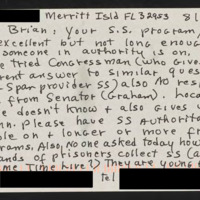 Merritt Isld FL 32953 8 1
Brian: Your S.S. program
excellent but not long enoug
someone in authority is on.
e tried Congressman (who give
erent answer to similar ques
-Span provider SS) also No res
from Senator (Graham). Loca
e doesn't know + also gives
n. Please have SS authorit
ble on + longer or more fr
rams. Also, No one asked today how
ands of prisoners collect SS (a
me Time Live?) They are young
tel